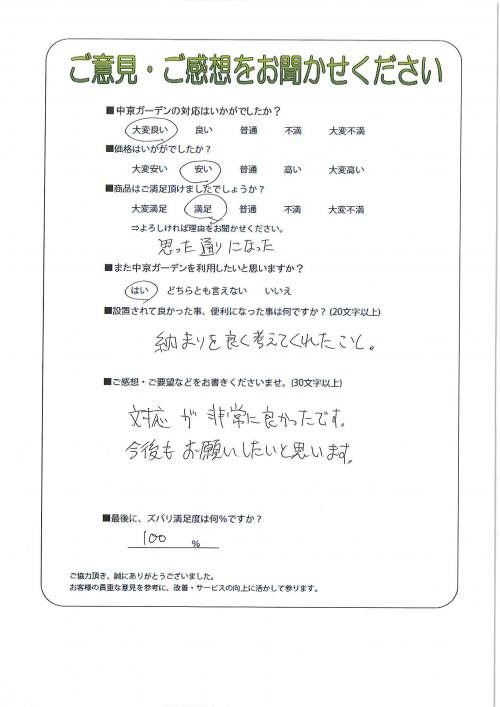 ご意見・ご感想をお聞かせください
■中京ガーデンの対応はいかがでしたか？
大変良い 良い 普通 不満 大変不満
■価格はいかがでしたか？
大変安い 安い 普通 高い 大変高い
■商品はご満足頂けましたでしょうか？
大変満足 満足 普通 不満 大変不満
⇒よろしければ理由をお聞かせください。
思った通りになった
■また中京ガーデンを利用したいと思いますか？
はい どちらとも言えない いいえ
■設置されて良かった事、便利になった事は何ですか？(20文字以上)
納まりを良く考えてくれたこと。
■ご感想・ご要望などをお書きくださいませ。(30文字以上)
対応が非常に良かったです。
今後もお願いしたいと思います。
■最後に、ズバリ満足度は何％ですか？
100 ％
ご協力頂き、誠にありがとうございました。
お客様の貴重な意見を参考に、改善・サービスの向上に活かして参ります。